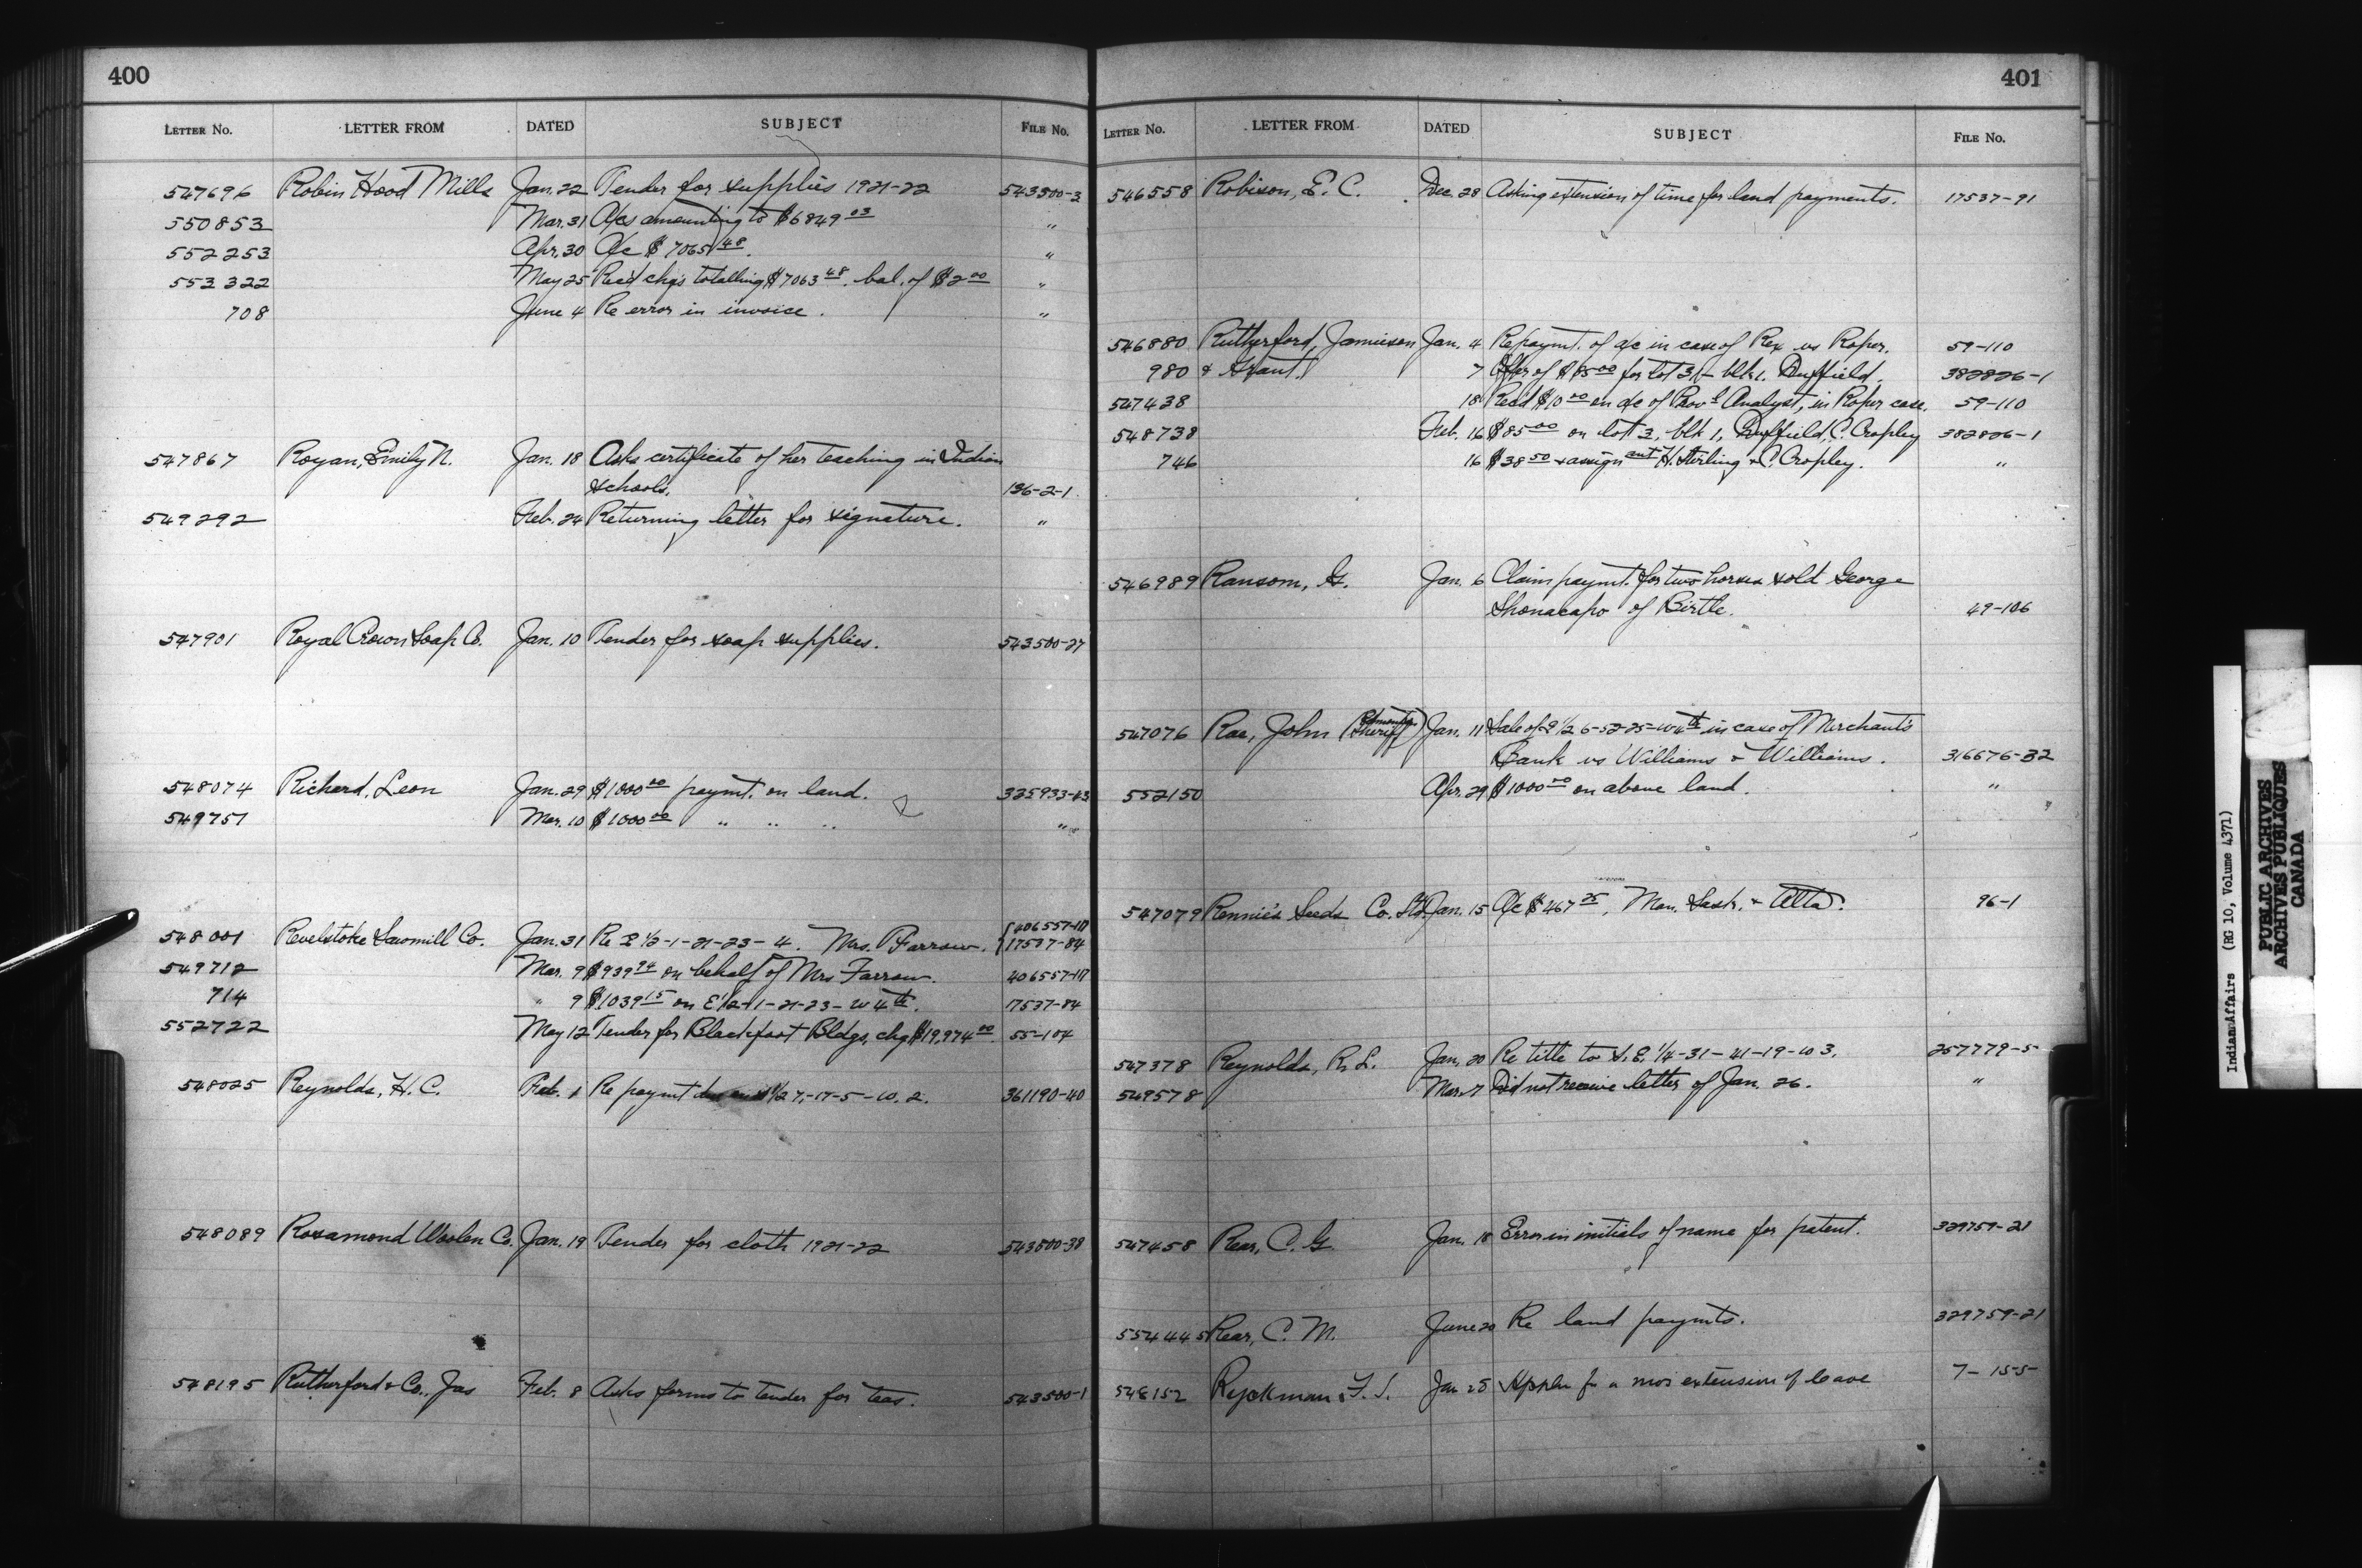 400
LETTER NO. LETTER FROM DATED SUBJECT FILE NO.
547696 Robin Hood Mills Jan. 22 Tender for supplies 1921-22 543500-3
550853 Mar. 31 A/cs amounting to $6849 03 "
552253 Apr. 30 A/c $7065 48. "
553322 May 25 Rec'd chqs totalling $7063 48. bal. of $2 00 "
708 June 4 Re error in invoice. "
547867 Royan, Emily N. Jan. 18 Asks certificate of her teaching in Indian
schools. 136-2-1
549292 Feb. 24 Returning letter for signature. "
547901 Royal Crown Soap Co. Jan. 10 Tender for soap supplies. 543500-27
548074 Richard, Leon Jan. 29 $1000 00 paymt. on land. 325933-43
549757 Mar. 10 $1000 00 " " " "
406557-117
548001 Revelstoke Sawmill Co. Jan. 31 Re E 1/2-1-21-23-4. Mrs. Farrow. 17537-84
549712 Mar. 9 $939 94 on behalf of Mrs Farrow. 406557-117
714 " 9 $1039 15 on E 1/2-1-21-23-W 4th. 17537-84
552722 May 12 Tender for Blackfoot Bldgs, chq $19,974 00. 55-104
548025 Reynolds, H. C. Feb. 1 Re paymt due on 1/2 7,-17-5-W. 2. 361190-40
548089 Rosamond Woolen Co. Jan. 19 Tender for cloth 1921-22 543500-38
548195 Rutherford & Co., Jas Feb. 8 Asks forms to tender for teas. 543500-1
401
LETTER NO. LETTER FROM DATED SUBJECT FILE NO.
546558 Robison, E. C. Dec. 28 Asking extension of time for land payments. 17537-91
546880 Rutherford, Jamieson Jan. 4 Re paymt. of a/c in case of Rex vs Roper. 59-110
980 & Grant. 7 Offer of $85 00 for lot 3,- blk 1. Duffield. 382826-1
547438 18 Rec'd $10 00 on a/c of Prov'l Analyst, in Roper case. 59-110
548738 Feb. 16 $85 00 on lot 3, blk 1, Duffield, C. Cropley 382826-1
746 16 $38 50 & assign ant H. Sterling & C. Cropley. "
546989 Ransom, G. Jan. 6 Claim paymt. for two horses sold George
Shonacapo of Birtle. 49-106
547076 Rae, John (Edmonton Sheriff) Jan. 11 Sale of E 1/2 6-52-25-W 4th in case of Merchant's
Bank vs Williams & Williams. 316676-32
552150 Apr. 29 $1000 00 on above land. "
547079 Rennie's Seeds Co. Ltd. Jan. 15 A/c $467 25, Man. Sask. & Alta. 96-1
547378 Reynolds, R. L. Jan. 20 Re title to S. E. 1/4-31-41-19-W 3. 257779-5
549578 Mar. 7 Did not receive letter of Jan. 26. "
547458 Rear, C. G. Jan. 18 Error in initials of name for patent. 329759-21
554445 Rear, C. M. June 20 Re land paymts. 329759-21
548152 Ryckman, F. J. Jan 25 Appln for a mos extension of leave 7-155
Indian Affairs (RG 10, Volume 4371)
PUBLIC ARCHIVES
ARCHIVES PUBLIQUES
CANADA